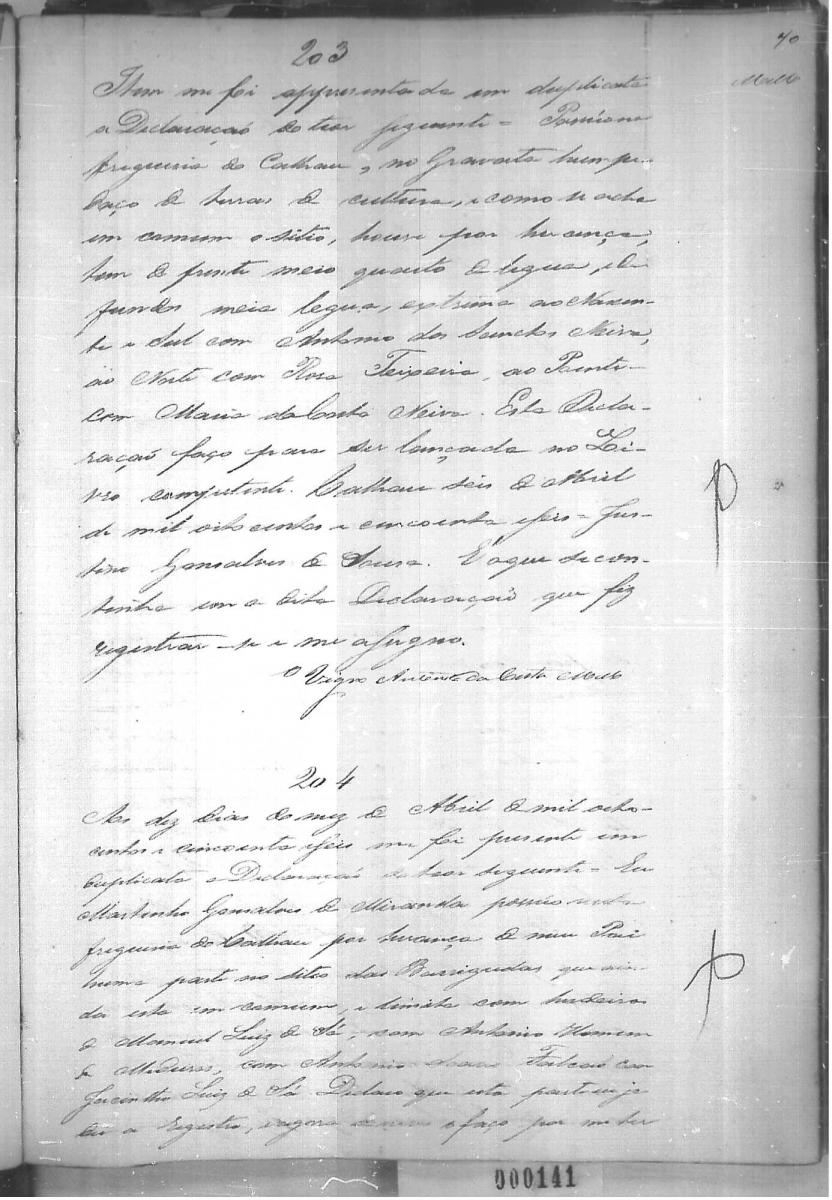 40
Mello
203
Item me foi appresentada em duplicata
a Declaração do teor seguinte = Possúo na
freguesia do Calhau, no Gravatá hum pe-
daço de terras de cultura, e como se acha
em comum o sitio, houve por herança,
tem de frente meio quarto de legoa, e de
fundos meia legua, extrema ao Nascen-
te e Sul com Antonio dos Santos Neiva,
ao Norte com Rosa Teixeira, ao Poente
com Maria da Costa Neiva. Esta Decla-
ração faço para ser lançada no Li-
vro competente. Calhau seis de Abril
de mil oitocentos e cincoenta e seis = Jus-
tino Gonsalves de Sousa. E o que se con-
tinha em a dita Declaração que fiz
registrar - se e me assigno.
O Vigro da Costa Mello
204
Aos dez dias do mez de Abril de mil oito-
centos e cincoenta e seis me foi presente em
duplicata a Declaração do teor seguinte = Eu
Martinho Gonsalves de Miranda possúo nesta
freguesia do Calhau por herança de meu Pai
huma parte no sitio das Barrigudas que ain-
da esta em comum, e limita com herdeiros
de Manuel Luiz de Sá, com Antonio Homem
de Medeiros, com Antonio Falcão com
Jacintho Luiz de Sá. Declaro que esta parte ja
dei a Registro, e agora de novo o faço por me ter
000141